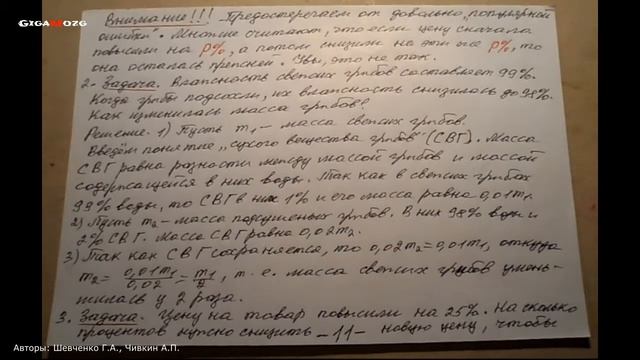 GIGAMOZG
Внимание!!! Предостерегаем от довольно „популярной
ошибки". Многие считают, что если цену сначала
повысили на P%, а потом снизили на эти же P%, то
она осталась прежней. Увы, это не так.
2. Задача. Влажность свежих грибов составляет 99%.
Когда грибы подсохли, их влажность снизилась до 98%.
Как изменилась масса грибов?
Решение. 1) Пусть m₁ – масса свежих грибов.
Введём понятие „сухого вещества грибов" (СВГ). Масса
СВГ равна разности между массой грибов и массой
содержащейся в них воды. Так как в свежих грибах
99% воды, то СВГ в них 1% и его масса равна 0,01m₁
2) Пусть m₂ – масса подсушеных грибов. В них 98% воды и
2% СВГ. Масса СВГ равна 0,02m₂.
3) Так как СВГ сохраняется, то 0,02m₂=0,01m₁, откуда
m₂ = 0,01m₁/0,02 = m₁/2, т. е. масса свежих грибов умень-
шилась в 2 раза.
3. Задача. Цену на товар повысили на 25%. На сколько
процентов нужно снизить –11– новую цену, чтобы
Авторы: Шевченко Г.А., Чивкин А.П.